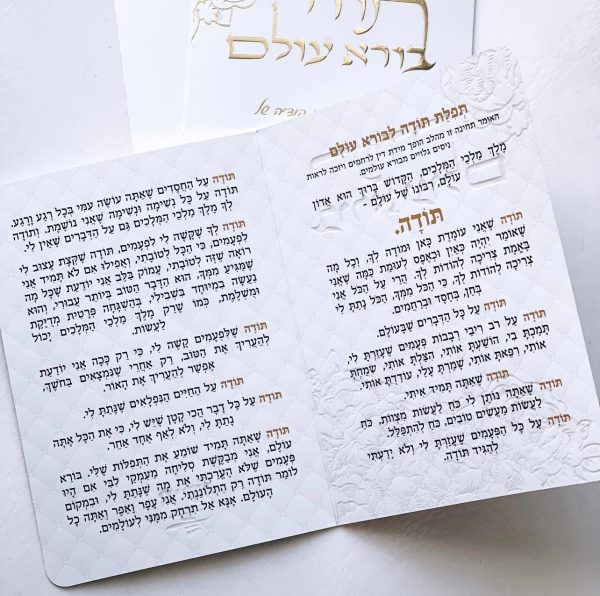 תודה
בורא עולם
הודיה של
תְּפִלַּת תּוֹדָה לְבוֹרֵא עוֹלָם
האומר תחינה זו מהלב הופך מידת דין לרחמים ויזכה לראות
ניסים גלויים מבורא עולמים.
מֶלֶךְ מַלְכֵי הַמְּלָכִים, הַקָּדוֹשׁ בָּרוּךְ הוּא אֲדוֹן
עוֹלָם, רִבּוֹנוֹ שֶׁל עוֹלָם -
תּוֹדָה.
תּוֹדָה שֶׁאֲנִי עוֹמֶדֶת כָּאן וּמוֹדָה לְךָ, וְכָל מַה
שֶּׁאוֹמַר יִהְיֶה כְּאַיִן וּכְאֶפֶס לְעֻמַּת כַּמָּה שֶׁאֲנִי
בֶּאֱמֶת צְרִיכָה לְהוֹדוֹת לְךָ. הֲרֵי עַל הַכֹּל אֲנִי
צְרִיכָה לְהוֹדוֹת לְךָ, כִּי הַכֹּל מִמְּךָ, הַכֹּל נָתַתָּ לִי
בְּחֵן, בְּחֶסֶד וּבְרַחֲמִים.
תּוֹדָה עַל כָּל הַדְּבָרִים שֶׁבָּעוֹלָם.
תּוֹדָה עַל רֹב רִיבֵי רְבָבוֹת פְּעָמִים שֶׁעָזַרְתָּ לִי,
תָּמַכְתָּ בִּי, הוֹשַׁעְתָּ אוֹתִי, הִצַּלְתָּ אוֹתִי, שִׂמַּחְתָּ
אוֹתִי, רִפֵּאתָ אוֹתִי, שָׁמַרְתָּ עָלַי, עוֹדַדְתָּ אוֹתִי.
תּוֹדָה שֶׁאַתָּה תָּמִיד אִיתִּי.
תּוֹדָה שֶׁאַתָּה נוֹתֵן לִי כֹּחַ לַעֲשׂוֹת מִצְווֹת, כֹּחַ
לַעֲשׂוֹת מַעֲשִׂים טוֹבִים, כֹּחַ לְהִתְפַּלֵּל.
תּוֹדָה עַל כָּל הַפְּעָמִים שֶׁעָזַרְתָּ לִי וְלֹא יָדַעְתִּי
לְהַגִּיד תּוֹדָה.
תּוֹדָה עַל הַחֲסָדִים שֶׁאַתָּה עוֹשֶׂה עִמִּי בְּכָל רֶגַע וָרֶגַע.
תּוֹדָה עַל כָּל נְשִׁימָה וּנְשִׁימָה שֶׁאֲנִי נוֹשֶׁמֶת. וְתוֹדָה
לְךָ מֶלֶךְ מַלְכֵי הַמְּלָכִים גַּם עַל הַדְּבָרִים שֶׁאֵין לִי.
תּוֹדָה לְךָ שֶׁקָּשֶׁה לִי לִפְעָמִים, תּוֹדָה שֶׁקְּצָת עָצוּב לִי
לִפְעָמִים, כִּי הַכֹּל לְטוֹבָתִי, וַאֲפִילוּ אִם לֹא תָּמִיד אֲנִי
רוֹאָה שֶׁזֶּה לְטוֹבָתִי, עָמוֹק בַּלֵּב אֲנִי יוֹדַעַת שֶׁכָּל מַה
שֶּׁמַּגִּיעַ מִמְּךָ, הוּא הַדָּבָר הַטּוֹב בְּיוֹתֵר עֲבוּרִי, וְהוּא
נַעֲשָׂה בִּמְיוּחָד בִּשְׁבִילִי, בְּהַשְׁגָּחָה פְּרָטִית מְדֻיֶּקֶת
וּמֻשְׁלֶמֶת, כְּמוֹ שֶׁרַק מֶלֶךְ מַלְכֵי הַמְּלָכִים יָכוֹל
לַעֲשׂוֹת.
תּוֹדָה שֶׁלִּפְעָמִים קָשֶׁה לִי, כִּי רַק כָּכָה אֲנִי יוֹדַעַת
לְהַעֲרִיךְ אֶת הַטּוֹב, רַק אַחֲרֵי שֶׁנִּמְצָאִים בַּחֹשֶׁךְ,
אֶפְשָׁר לְהַעֲרִיךְ אֶת הָאוֹר.
תּוֹדָה עַל הַחַיִּים הַנִּפְלָאִים שֶׁנָּתַתָּ לִי.
תּוֹדָה עַל כָּל דָּבָר הֲכִי קָטָן שֶׁיֵּשׁ לִי, כִּי אֶת הַכֹּל אַתָּה
נָתַתָּ לִי, וְלֹא לְאַף אֶחָד אַחֵר.
תּוֹדָה שֶׁאַתָּה תָּמִיד שׁוֹמֵעַ אֶת הַתְּפִלּוֹת שֶׁלִּי, בּוֹרֵא
עוֹלָם, אֲנִי מְבַקֶּשֶׁת סְלִיחָה מֵעֻמְקֵי לִבִּי אִם הָיוּ
פְּעָמִים שֶׁלֹּא הֶעֱרַכְתִּי אֶת מַה שֶּׁנָּתַתָּ לִי, וּבִמְקוֹם
לוֹמַר תּוֹדָה רַק הִתְלוֹנַנְתִּי. אֲנִי עָפָר וָאֵפֶר וְאַתָּה כָל
הָעוֹלָם. אָנָּא אַל תִּרְחַק מִמֶּנִּי לְעוֹלָמִים.